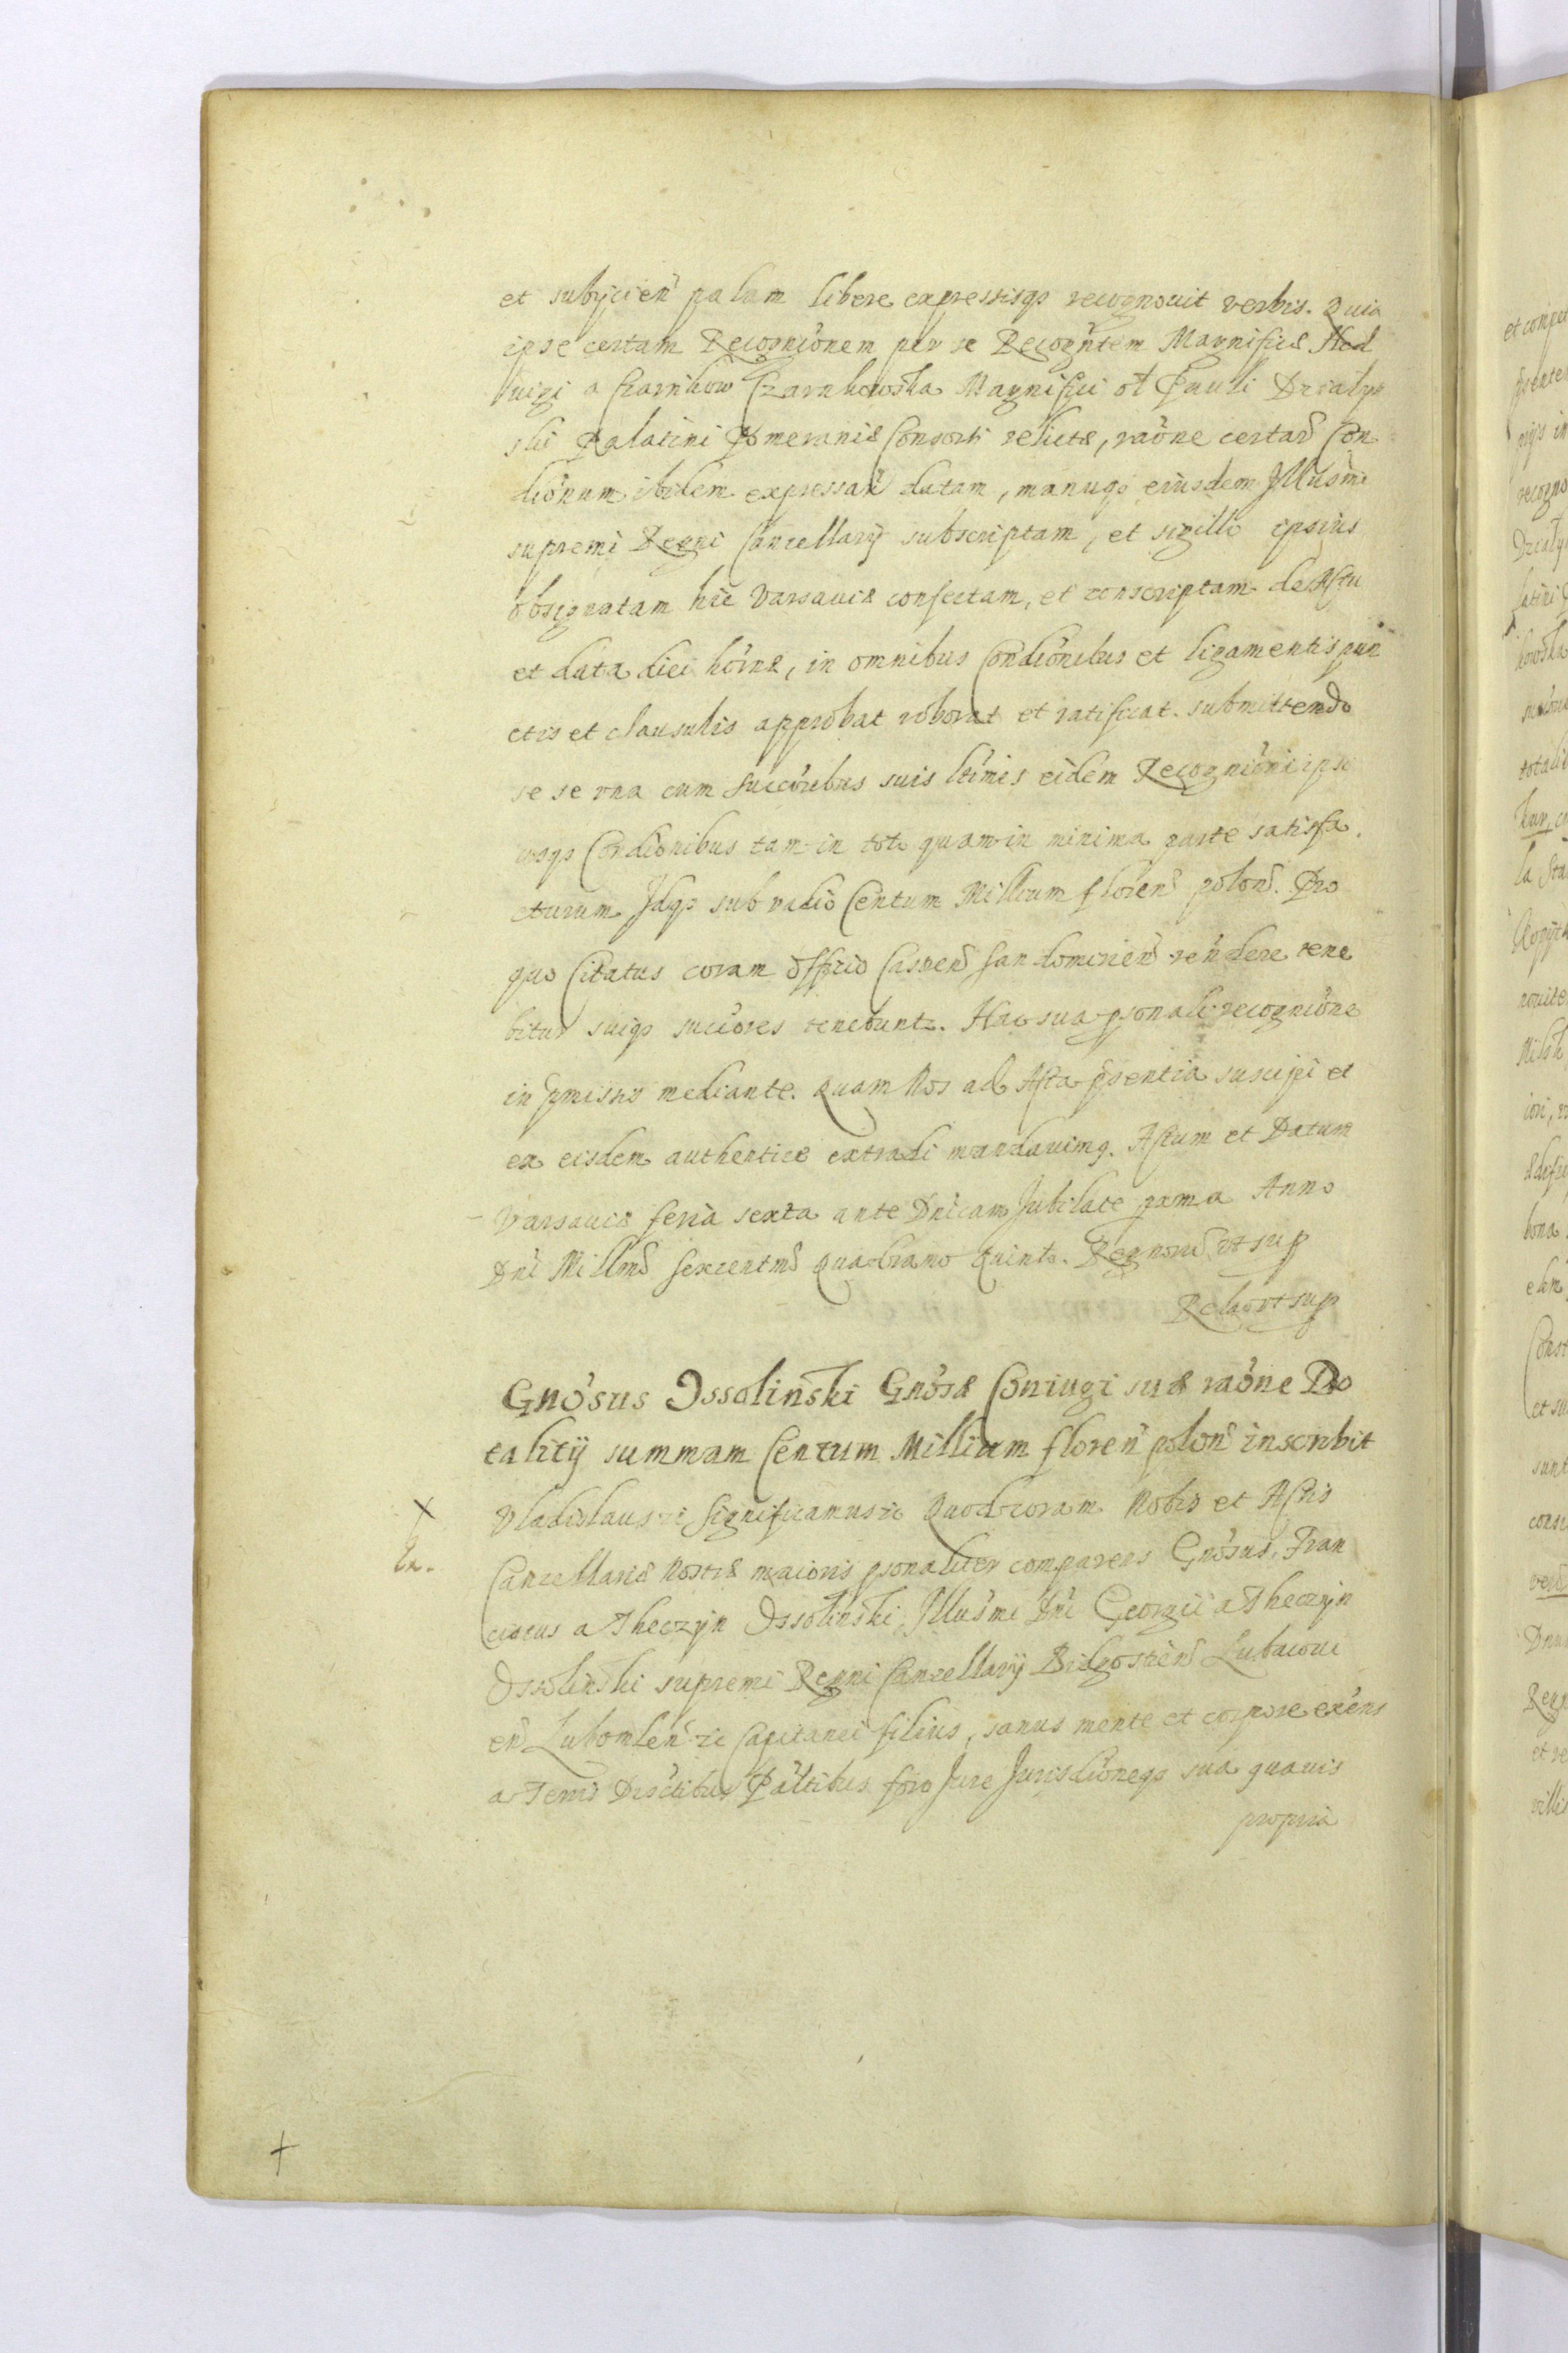 et subÿcień palam libere expressisqȝ recognovit verbis. Quia
ipse certam Recognionem per se Recogntem Magnificæ Hed
uigi a Czarnkow Czarnkowska Magnifici ol Pauli Dzialyn
ski Palatini Pomeraniæ Consorti relictæ, raone certaȓ Con
dionum ibidem expressaȓ datam, manuqȝ eiusdem Illusmi
supremi Regni Cancellarÿ subscriptam, et sigillo ipsius
obsignatam hic Varsauiæ confectam, et conscriptam de Actu
et data diei hornæ, in omnibus Condionibus et ligamentis pun
ctis et clausulis approbat roborat et ratificat. submittendo
se se vna cum succoribus suis ltimis eidem Recognioni ipsi
usqȝ Condionibus tam in toto quam in minima parte satisfa
cturum Idqȝ sub vadio Centum Millium floreń poloń. Pro
quo Citatus coram officio Castreń Sandomirień rendere tene
bitur suiqȝ succores tenebuntr. Hac sua psonali recognione
in pmissis mediante. Quam Nos ad Acta psentia suscipi et
ex eisdem authentice extradi mandauimq. Actum et Datum
Varsauiæ feria sexta ante Dnicam Jubilate pxma Anno
Dni Millmo Sexcentmo Quadramo Quinto. Regnoru vt sup
Relao vt sup
Gnosus Ossolinski Gnosæ Coniugi suæ raone Do
talitÿ summam Centum Millium floreń poloń inscribit
X
Ex.
Vladislaus zc Significamus zc Quod coram Nobis et Actis
Cancellariæ Nostræ maioris psonaliter comparens Gnosus Fran
ciscus a Theczyn Ossolinski, Illusmi Dni Georgii a Theczÿn
Ossolinski supremi Regni Cancellarÿ Bidgostień Lubaczoui
eń Lubomleń zc Capitanei filius, sanus mente et corpore exens
a Terris Disctibus Paltibus foro Jure Jurisdioneqȝ sua quauis
propria